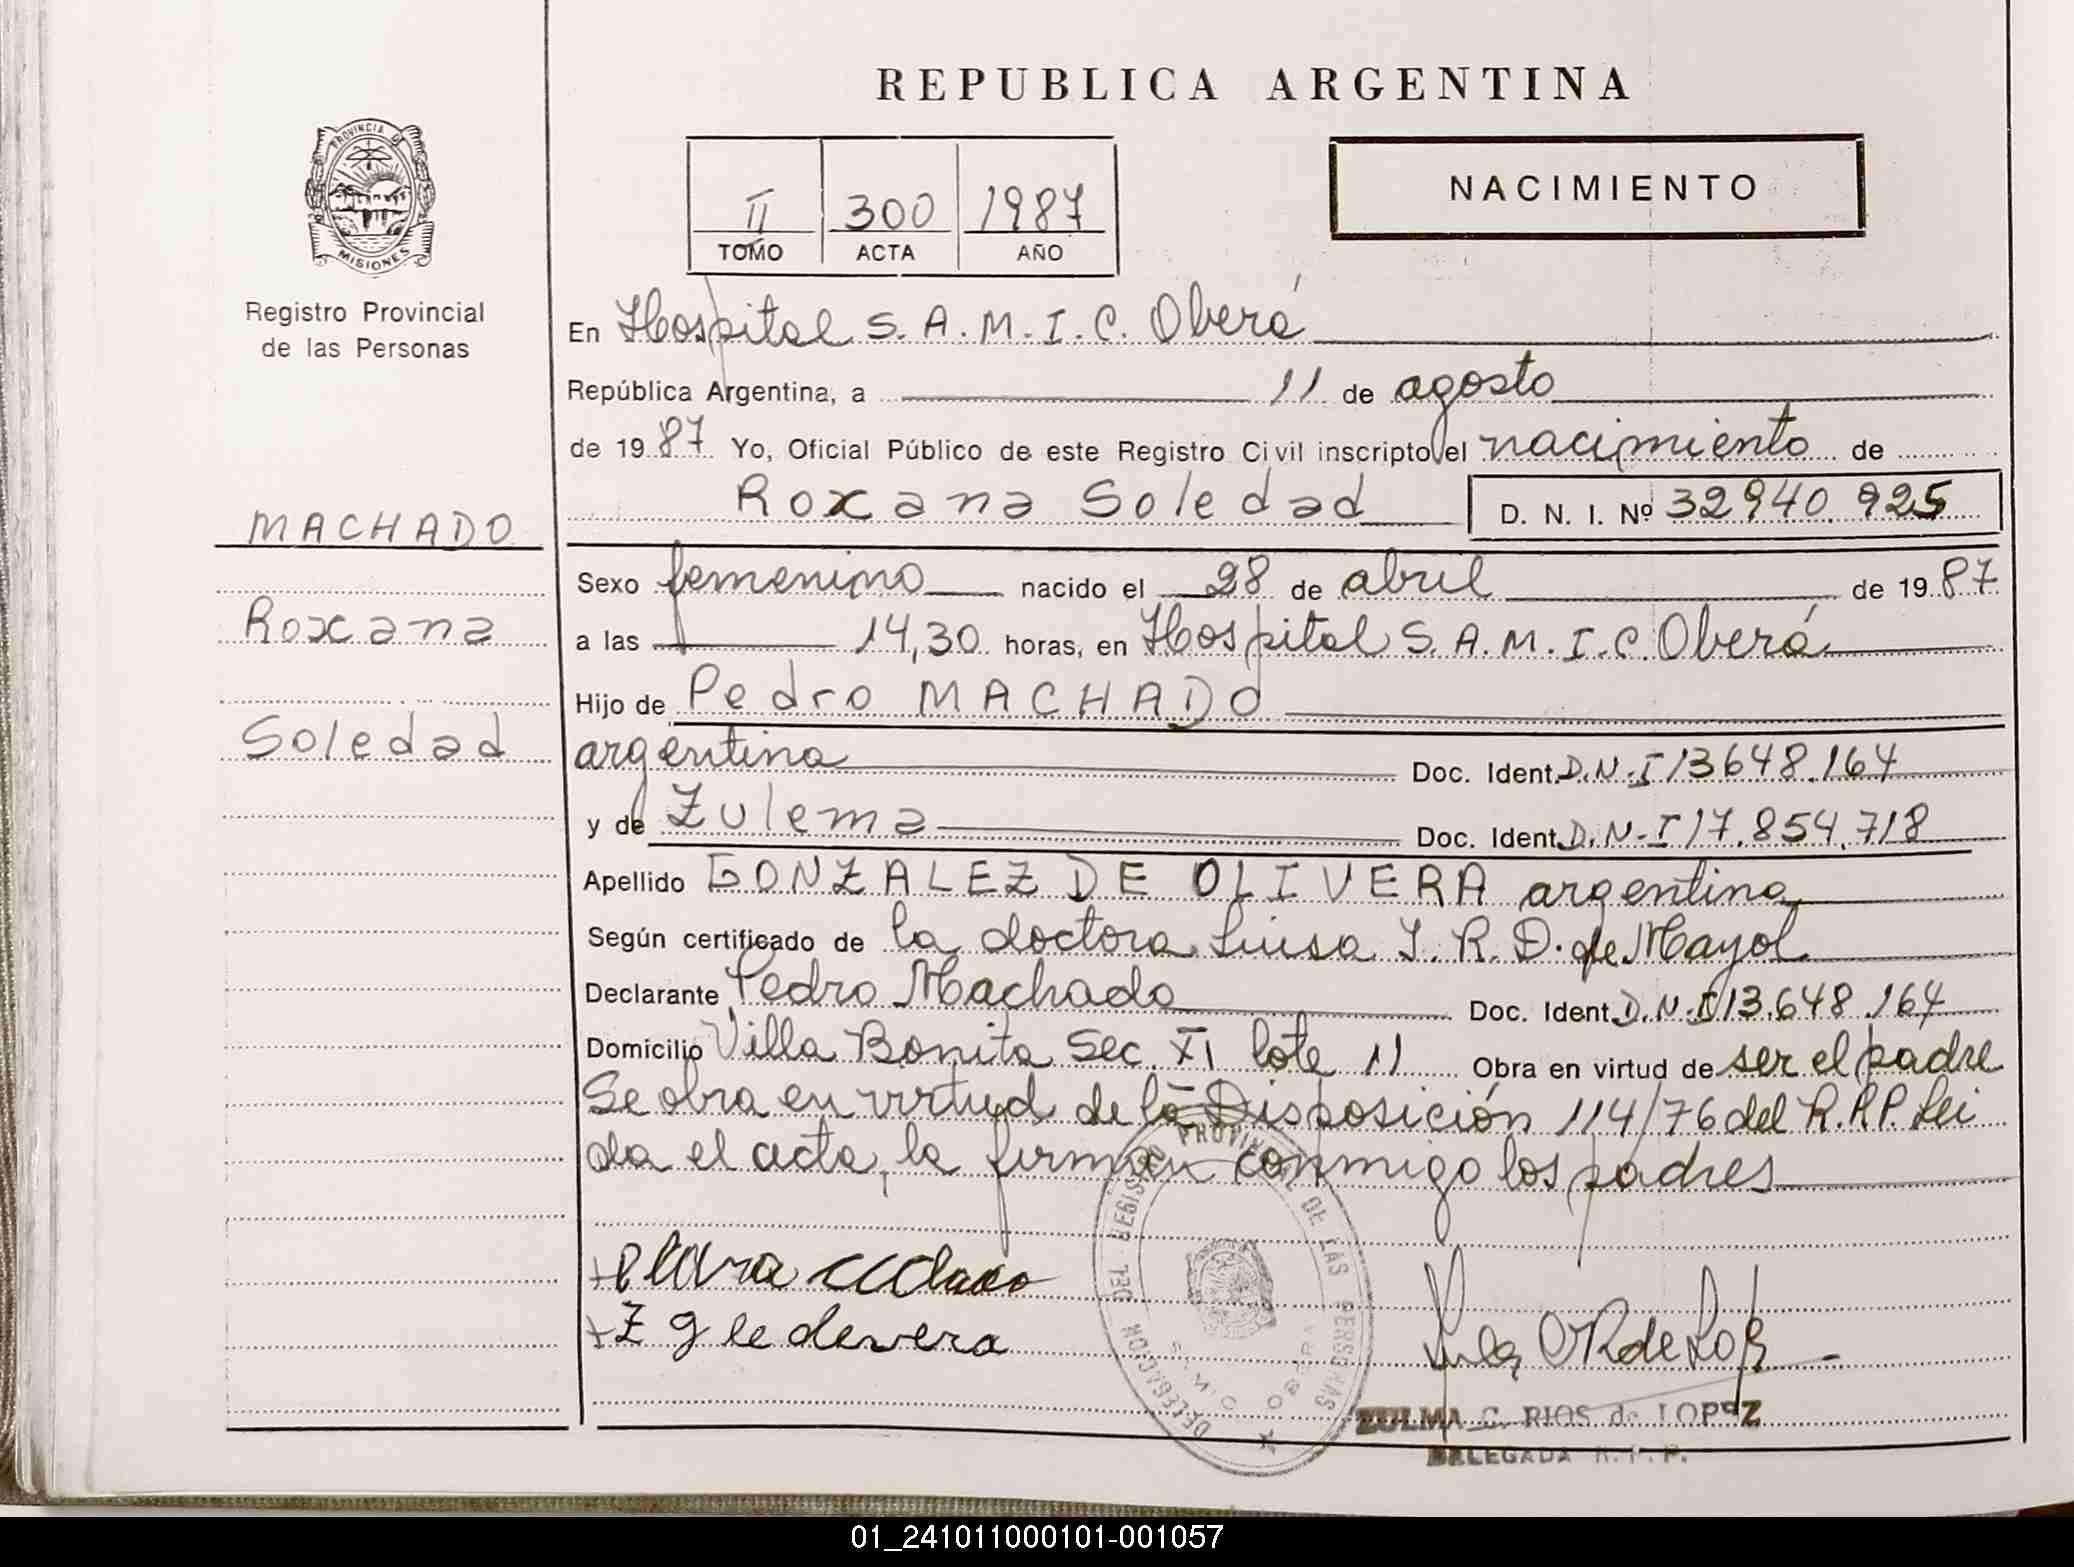 REPUBLICA ARGENTINA
PROVINCIA DE
MISIONES
Registro Provincial
de las Personas
II 300 1987
TOMO ACTA AÑO
NACIMIENTO
En Hospital S.A.M.I.C. Oberá
República Argentina, a 11 de agosto
de 1987 Yo, Oficial Público de este Registro Civil inscripto el nacimiento de
Roxana Soledad D. N. I. Nº 32940.925
MACHADO
Roxana
Soledad
Sexo femenino nacido el 28 de abril de 1987
a las 14,30 horas, en Hospital S.A.M.I.C. Oberá
Hijo de Pedro MACHADO
argentina Doc. Ident. D.N.I 13648.164
y de Zulema Doc. Ident. D.N-I 17.854.718
Apellido GONZALEZ DE OLIVERA argentina
Según certificado de la doctora Luisa I. R. D. de Mayol
Declarante Pedro Machado Doc. Ident. D.N.I 13.648.164
Domicilio Villa Bonita Sec. XI lote 11 Obra en virtud de ser el padre
Se obra en virtud de la Disposición 114/76 del R.P.P. Lei
da el acta, la firman conmigo los padres
DELEGACION DEL REGISTRO PROVINCIAL DE LAS PERSONAS
ZULMA C. RIOS de LOPEZ
DELEGADA R. P. P.
01_241011000101-001057